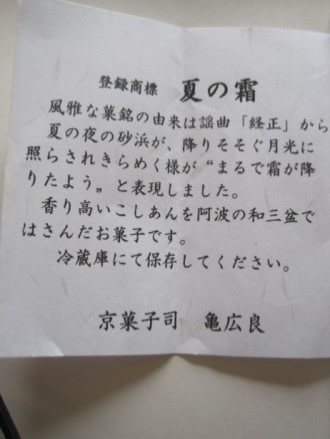 登録商標　夏の霜
風雅な菓銘の由来は謡曲「経正」から
夏の夜の砂浜が、降りそそぐ月光に
照らされきらめく様が“まるで霜が降
りたよう„と表現しました。
香り高いこしあんを阿波の和三盆で
はさんだお菓子です。
冷蔵庫にて保存してください。
京菓子司　亀広良